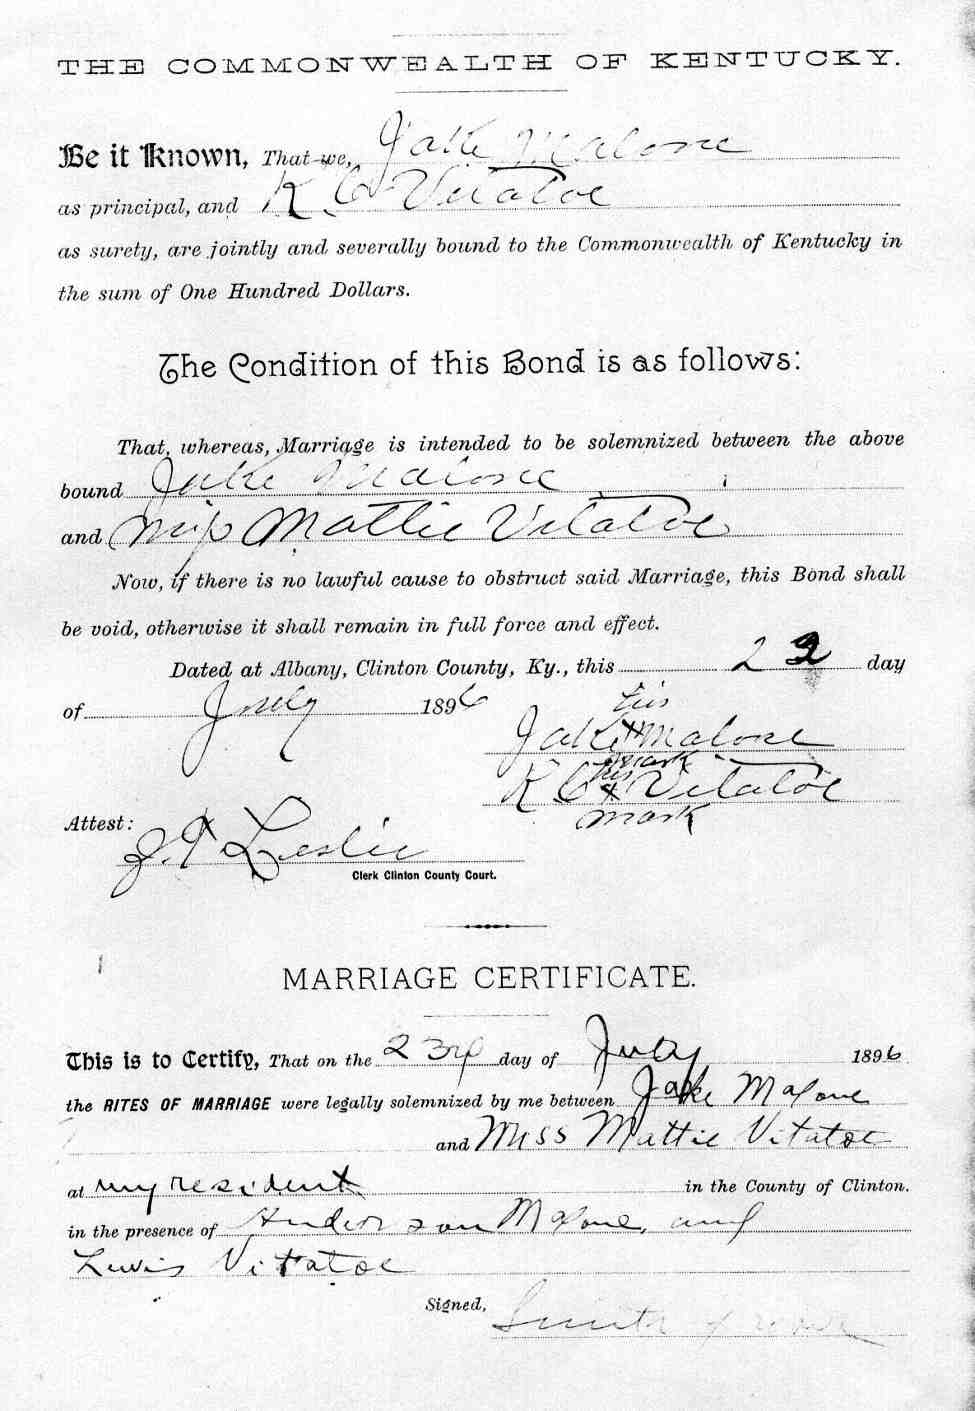 THE COMMONWEALTH OF KENTUCKY.
Be it Known, That we, Jake Malone
as principal, and K C Vitatoe
as surety, are jointly and severally bound to the Commonwealth of Kentucky in
the sum of One Hundred Dollars.
The Condition of this Bond is as follows:
That, whereas, Marriage is intended to be solemnized between the above
bound Jake Malone
and Miss Mattie Vitatoe
Now, if there is no lawful cause to obstruct said Marriage, this Bond shall
be void, otherwise it shall remain in full force and effect.
Dated at Albany, Clinton County, Ky., this 22 day
of July 1896
his
Jake X Malone
mark
his
K C X Vitatoe
mark
Attest:
Leslie
Clerk Clinton County Court.
MARRIAGE CERTIFICATE.
This is to Certify, That on the 23rd day of July 1896
the RITES OF MARRIAGE were legally solemnized by me between Jake Malone
and Miss Mattie Vitatoe
at my resident in the County of Clinton.
in the presence of Anderson Malone, and
Lewis Vitatoe
Signed, Smith